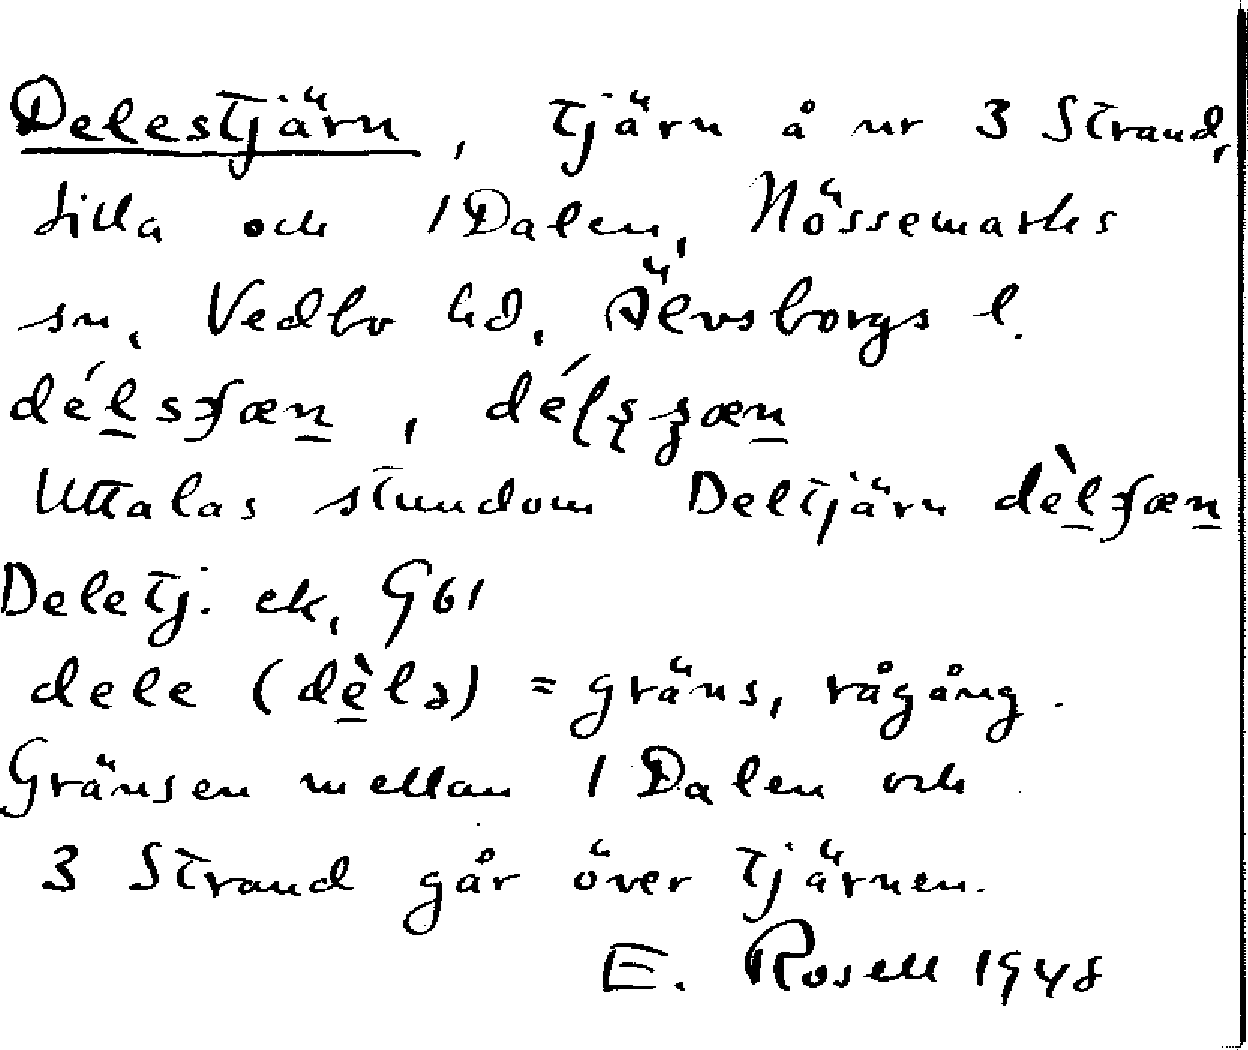 Delestjärn, tjärn å nr 3 Strand,
Lilla och 1 Dalen, Nössemarks
sn, Vedbo hd, Älvsborgs l.
Uttalas stundom Deltjärn
Deletj. ek, G61
dele (dèlə) = gräns, rågång.
Gränsen mellan 1 Dalen och
3 Strand går över tjärnen.
E. Rosell 1948